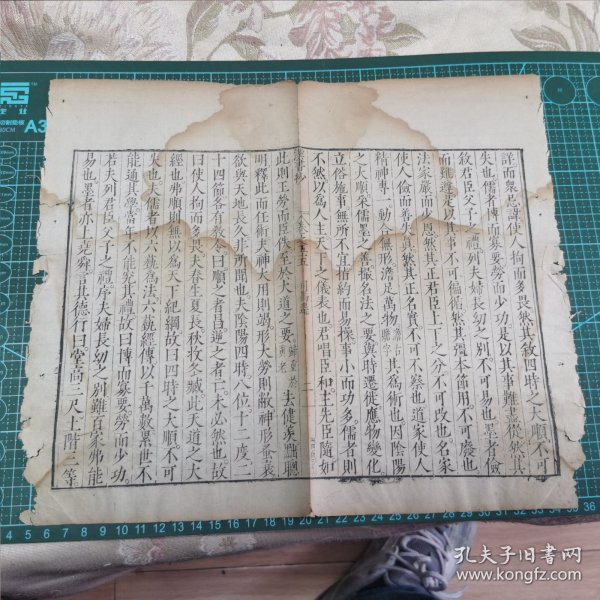 詳而衆忌諱使人拘而多畏然其敘四時之大順不可
失也儒者博而寡要勞而少功是以其事難盡從然其
敘君臣父子之禮列夫婦長幼之別不可易也墨者儉
而難遵是以其事不可徧循然其彊本節用不可廢也
法家嚴而少恩然其正君臣上下之分不可改也名家
使人儉而善失真然其正名實不可不察也道家使人
精神專一動合無形澹足萬物澹古贍字其爲術也因陰陽
之大順采儒墨之善撮名法之要與時遷徙應物變化
立俗施事無所不宜指約而易操事小而功多儒者則
不然以爲人主天下之儀表也君唱臣和主先臣隨如
此則主勞而臣佚至於大道之要歸重於黃老去健羨黜聰
明釋此而任術夫神大用則竭形大勞則敝神形蚤衰
欲與天地長久非所聞也夫陰陽四時八位十二度二
十四節各有教令曰順之者昌逆之者亡未必然也故
曰使人拘而多畏夫春生夏長秋收冬臧此天道之大
經也弗順則無以爲天下紀綱故曰四時之大順不可
失也夫儒者以六藝爲法六藝經傳以千萬數累世不
能通其學當年不能究其禮故曰博而寡要勞而少功
若夫列君臣父子之禮序夫婦長幼之別雖百家弗能
易也墨者亦上堯舜言其德行曰堂高三尺土階三等
A3
4 5 6 7 8 9 10 11 12 13 14 15 16 17 18 19 20 21 22 23 24 25 26 27 28 29 30 31 32 33 34 35 36
孔夫子旧书网
www.kongfz.com